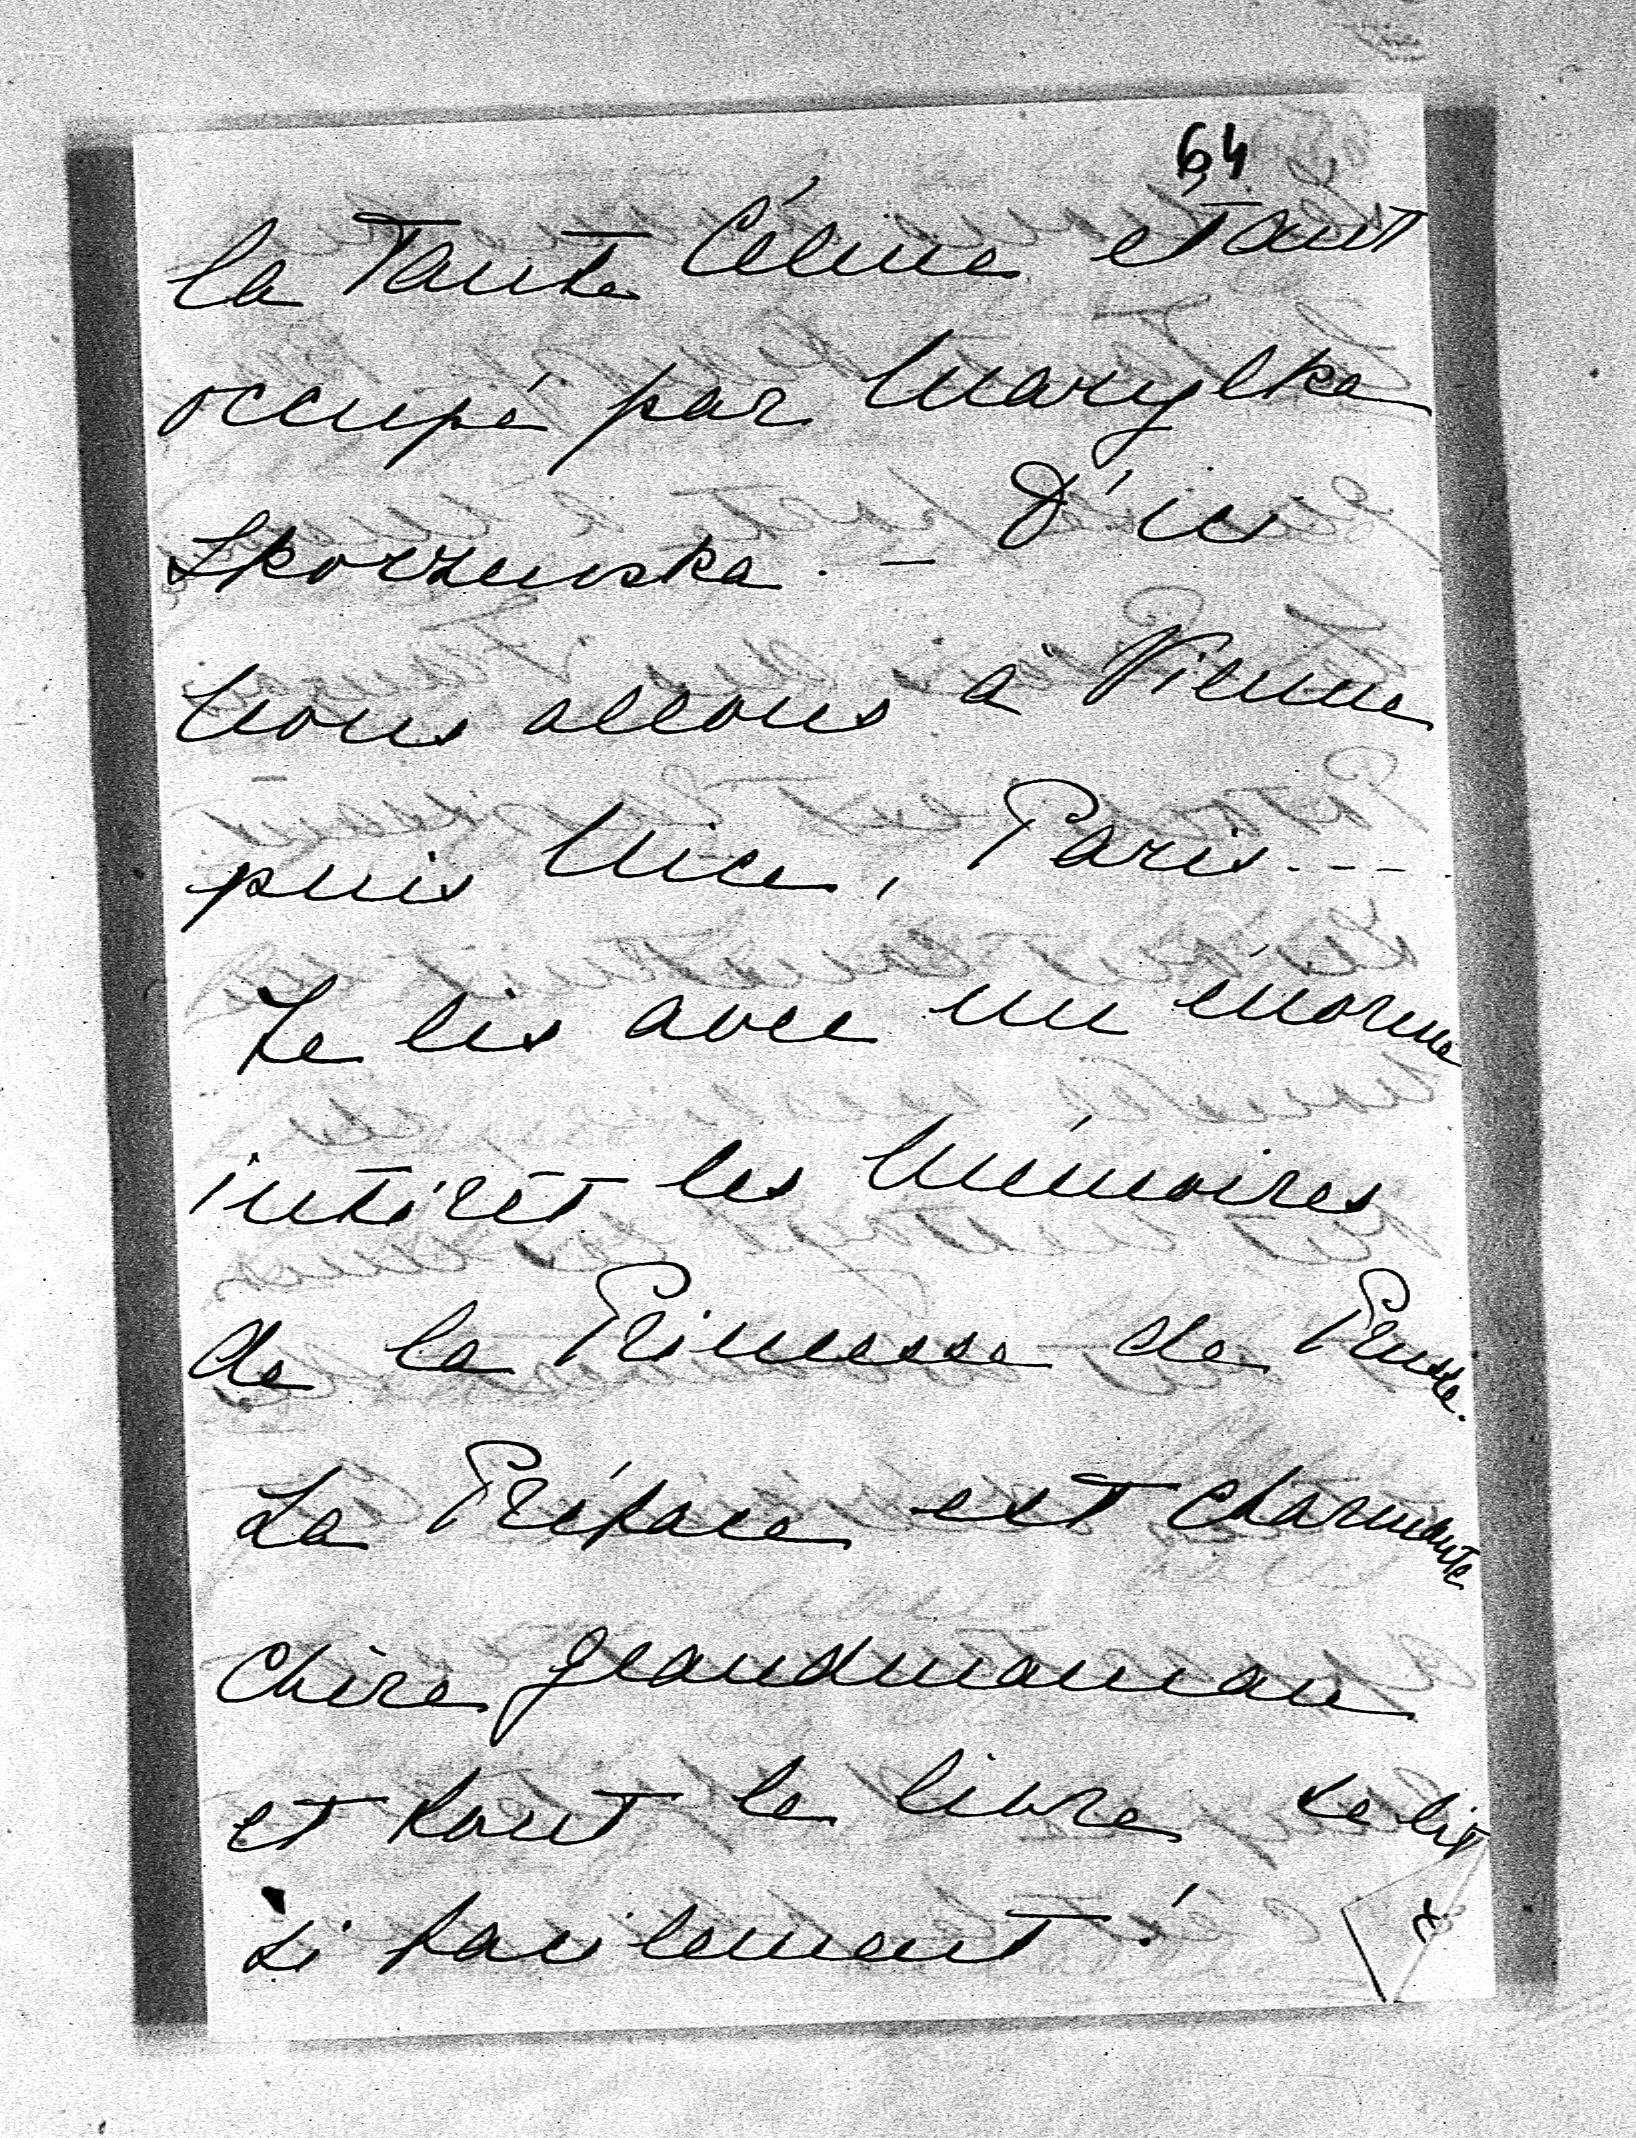 64
la Tante Céline étant
occupé par Marylka
Skorzewska. — D'ici
nous allons à Vienne
puis Nice, Paris ---
Je lis avec un énorme
intérêt les Mémoires
de la Princesse de Prusse.
La Préface est charmante
chère grandmaman
et tout le livre se lit
si facilement!